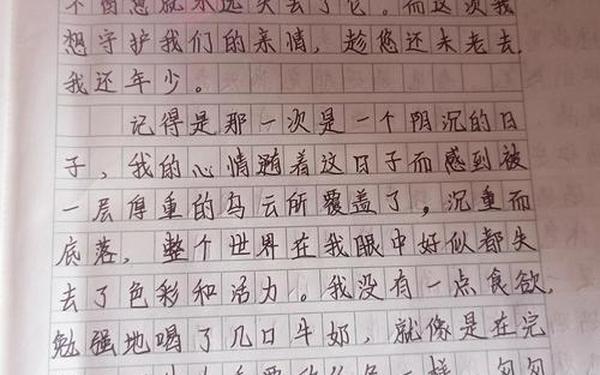 不留意就永远失去了它。而这次我
想守护我们的亲情，趁您还未老去，
我还年少。
记得是那一次是一个阴沉的日
子，我的心情随着这日子而感到被
一层厚重的乌云所覆盖了，沉重而
底落，整个世界在我眼中好似都失
去了色彩和活力。我没有一点食欲，
勉强地喝了几口牛奶，就像是在完
一样，匆匆